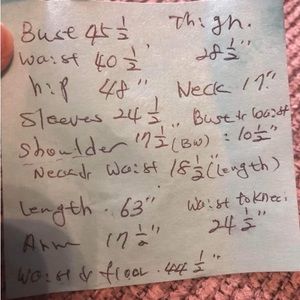 Bust 45 1/2" Thigh.
Waist 40 1/2" 28 1/2"
hip 48" Neck 17"
Sleeves 24 1/2" Bust to Waist
Shoulder 17 1/2" (BW) : 10 1/2"
Neck to Waist 18 1/2" (length)
Length . 63" Waist to Knee:
Arm 17 1/2" 24 1/2"
Waist to floor . 44 1/2"